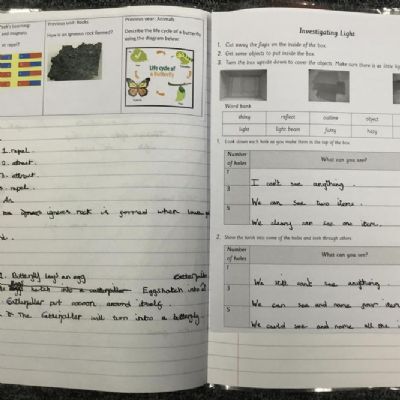 Previous unit: Rocks
How is an igneous rock formed?
Previous year: Animals
Describe the life cycle of a butterfly
using the diagram below.
Life cycle of
a Butterfly
and magnets
or repel?
1. repel.
2. attract.
3. attract.
repel.
rock is formed when
1. Butterfly lays an egg
Eggs hatch into a
Catterpillar put cocoon around itself.
The Catterpillar will turn into a butterfly.
Investigating Light
1. Cut away the flaps on the inside of the box.
2. Get some objects to put inside the box.
3. Turn the box upside down to cover the objects. Make sure there is as little light
Word bank
shiny reflect outline object
light light beam fuzzy hazy
1. Look down each hole as you make them in the top of the box.
Number
of holes
What can you see?
1
I can't see anything.
3
We can see two items.
5
We cleary can see one item.
2. Shine the torch into some of the holes and look through others.
Number
of holes
What can you see?
1
We still can't see anything.
3
We can see and name four items
5
We could see and name all the